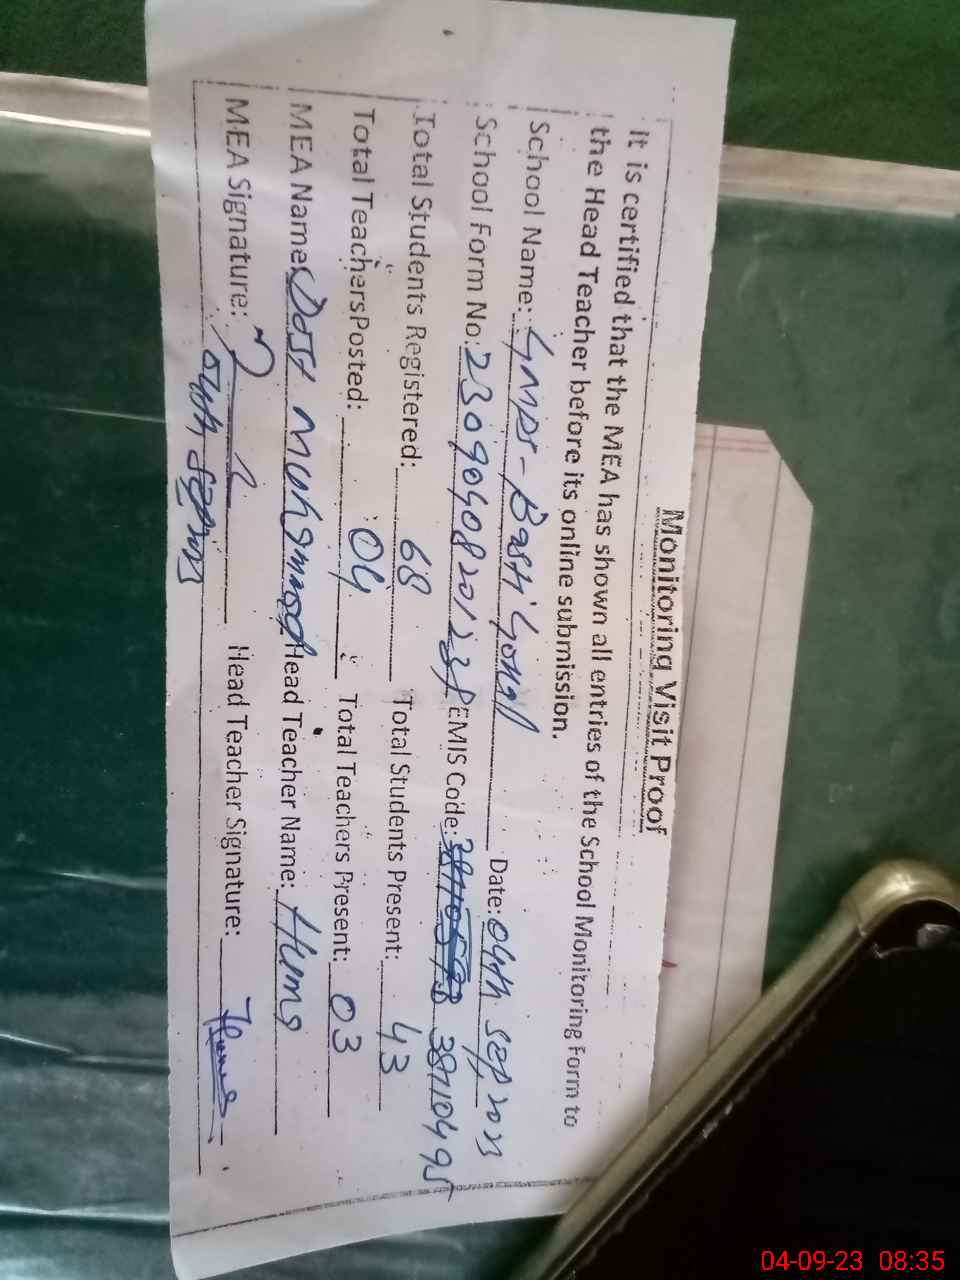 Monitoring Visit Proof
It is certified that the MEA has shown all entries of the School Monitoring Form to
the Head Teacher before its online submission.
School Name: GMPS - Basti Gonall Date: 04th Sep 2023
School Form No: EMIS Code: 38110495
Total Students Registered: 68 Total Students Present: 43
Total Teachers Posted: 04 Total Teachers Present: 03
MEA Name: Dost Muhammad Head Teacher Name: Huma
MEA Signature: Head Teacher Signature: Huma
04th Sep 2023
04-09-23 08:35